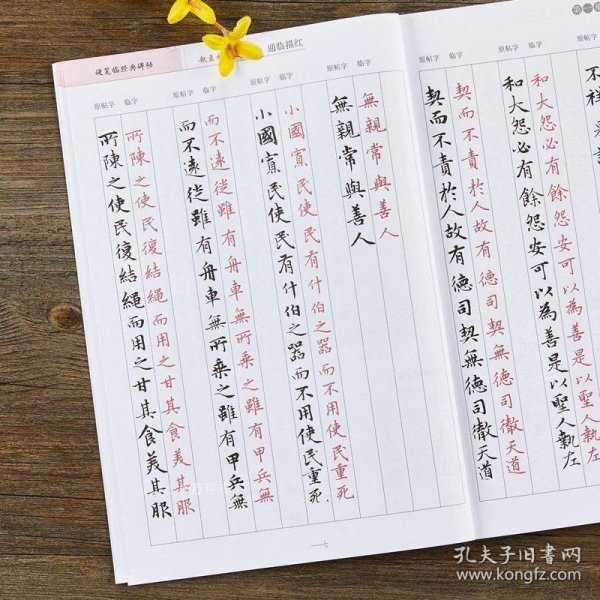 硬笔临经典碑帖
通临描红
原帖字 临字
原帖字 临字
和大怨必有餘怨安可以為善是以聖人執左
和大怨必有餘怨安可以為善是以聖人執左
原帖字 临字
契而不責於人故有德司契無德司徹天道
契而不責於人故有德司契無德司徹天道
原帖字 临字
無親常與善人
無親常與善人
原帖字 临字
小國寡民使民有什伯之器而不用使民重死
小國寡民使民有什伯之器而不用使民重死
原帖字 临字
而不遠徙雖有舟車無所乘之雖有甲兵無
而不遠徙雖有舟車無所乘之雖有甲兵無
原帖字 临字
所陳之使民復結繩而用之甘其食美其服
所陳之使民復結繩而用之甘其食美其服
七
孔夫子旧书网
www.kongfz.com